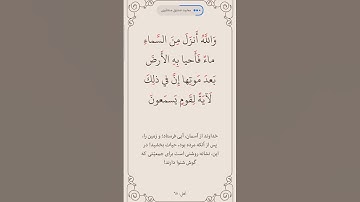 وَاللَّهُ أَنزَلَ مِنَ السَّماءِ
ماءً فَأَحيا بِهِ الأَرضَ
بَعدَ مَوتِها إِنَّ في ذٰلِكَ
لَآيَةً لِقَومٍ يَسمَعونَ
خداوند از آسمان، آبی فرستاد؛ و زمین را،
پس از آنکه مرده بود، حیات بخشید! در
این، نشانه روشنی است برای جمعیّتی که
گوش شنوا دارند!